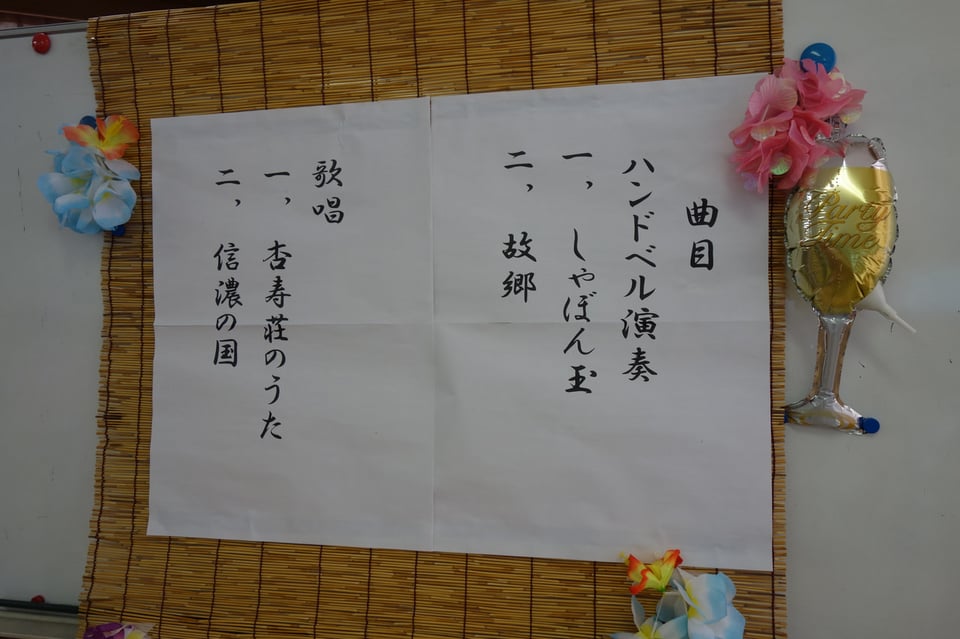 曲目
ハンドベル演奏
一, しゃぼん玉
二, 故郷
歌唱
一, 杏寿荘のうた
二, 信濃の国
Party
Time